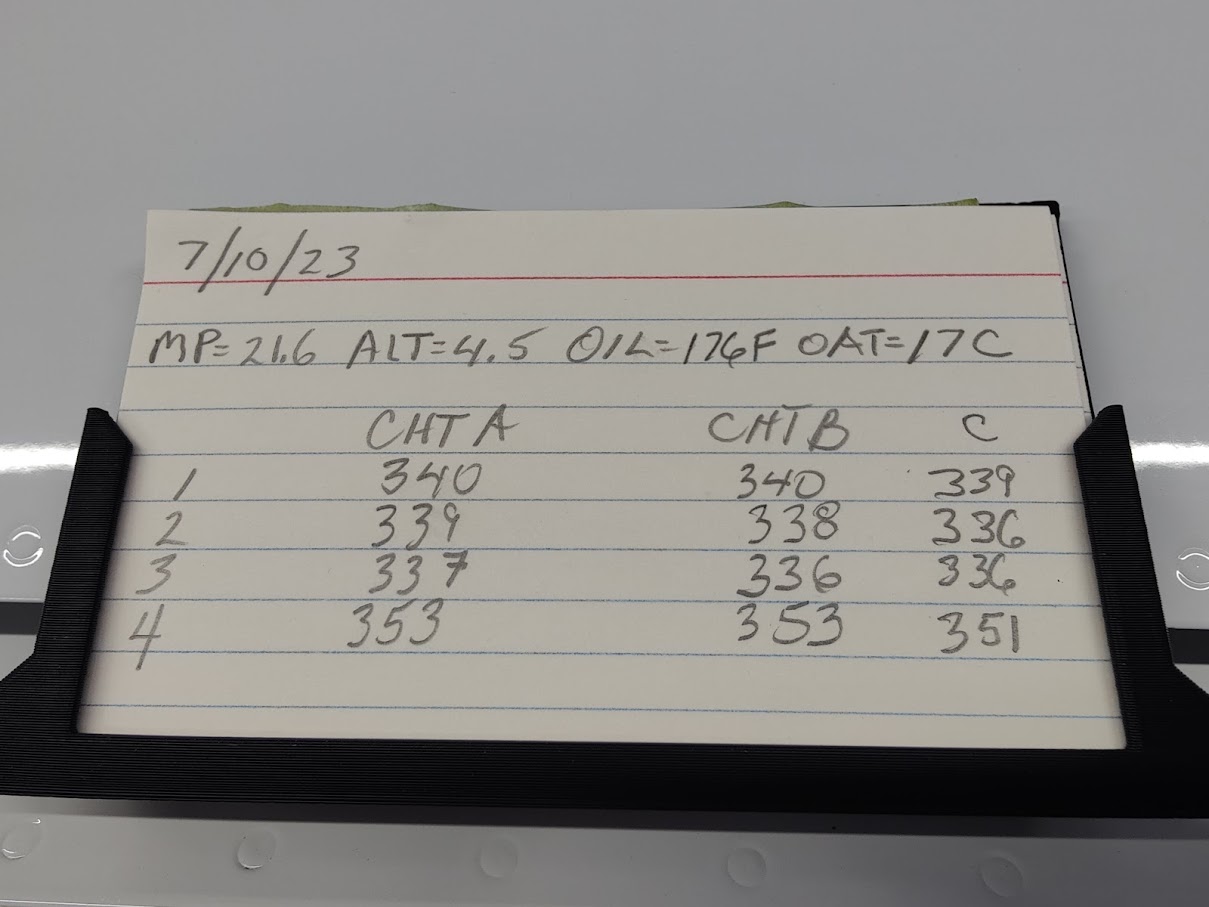 7/10/23
MP=21.6 ALT=4.5 OIL=176F OAT=17C
CHT A CHT B C
1 340 340 339
2 339 338 336
3 337 336 336
4 353 353 351